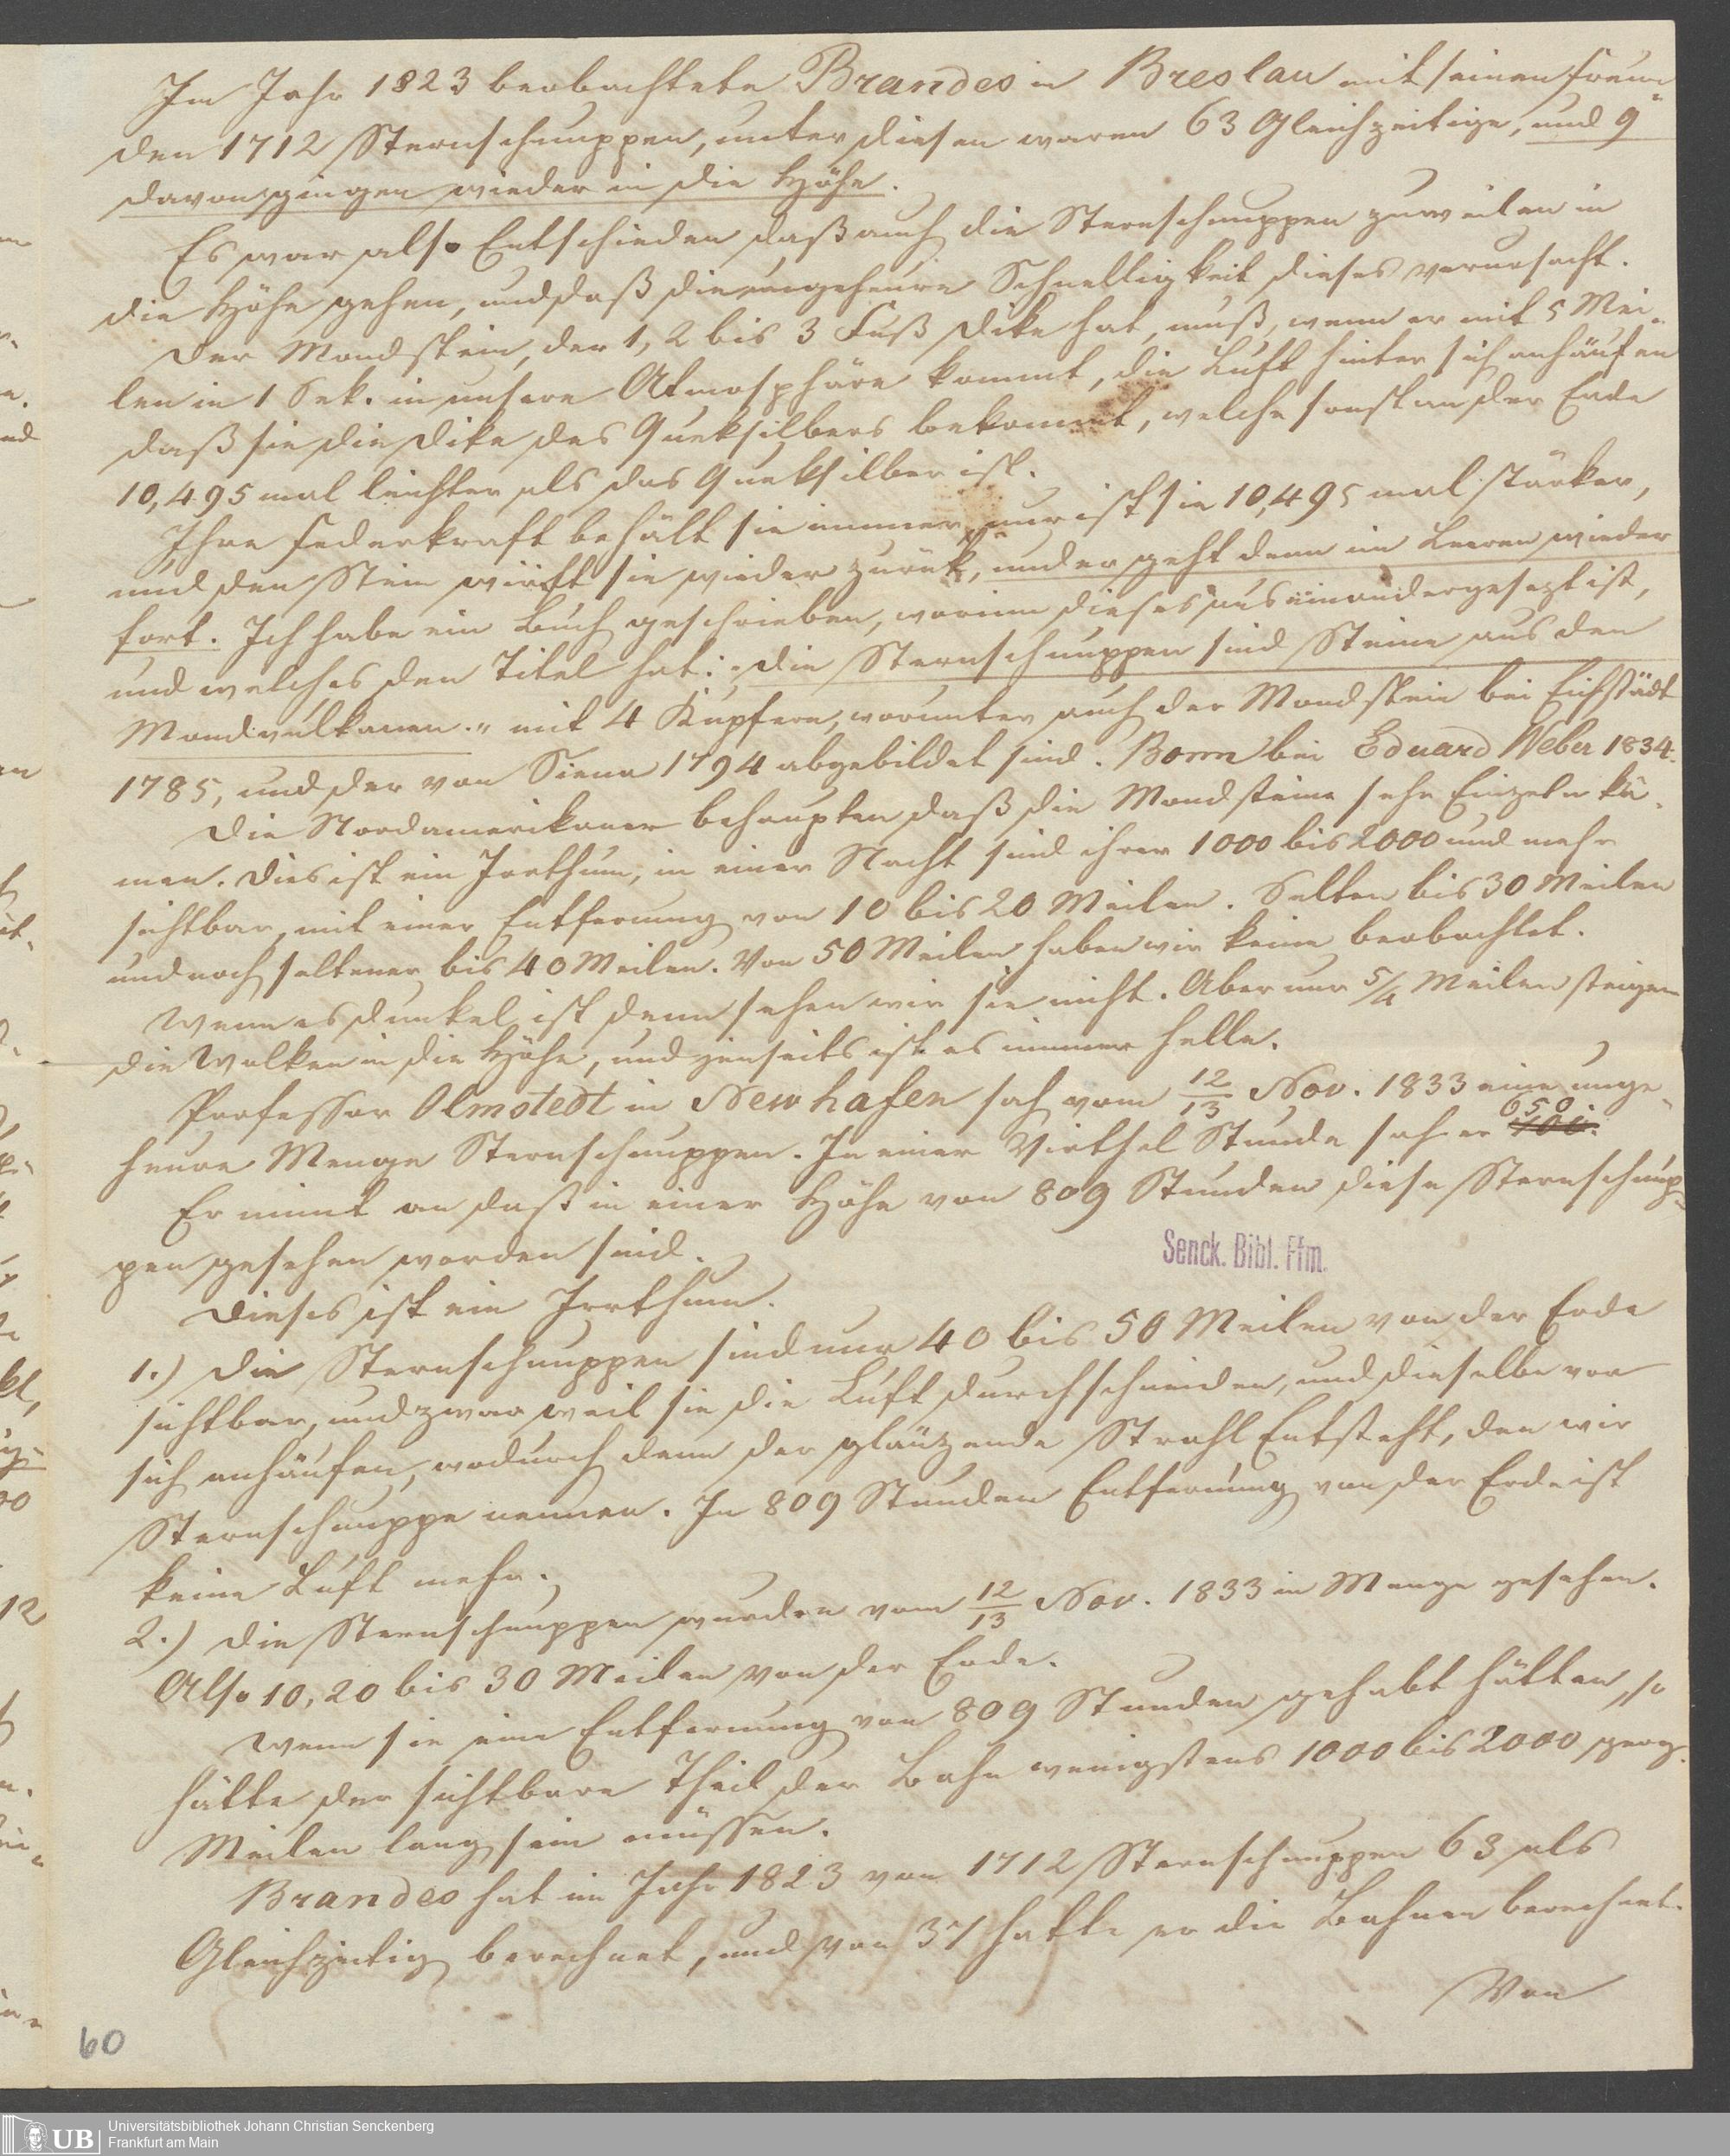 Im Jahr 1823 beobachtete Brandes in Breslau mit seinen Freun-
den 1712 Sternschnuppen, unter diesen waren 63 Gleichzeitige, und 9
davon gingen wieder in die Höhe.
Es war also Entschieden daß auch die Sternschnuppen zuweilen in
die Höhe gehen, und daß die ungeheure Schnelligkeit dieses verursacht.
Der Mondstein, der 1, 2 bis 3 Fuß Dike hat, muß, wenn er mit 5 Mei-
len in 1 Sek. in unsere Atmosphäre kommt, die Luft hinter sich anhäufen
daß sie die Dike des Queksilbers bekommt, welche sonst an der Erde
10,495 mal leichter als das Queksilber ist.
Ihre Federkraft behält sie immer, nur ist sie 10,495 mal stärker,
und den Stein wirft sie wieder zurük, und er geht denn im Leeren wieder
fort. Ich habe ein Buch geschrieben, worinn dieses auseinandergesezt ist,
und welches den Titel hat: „die Sternschnuppen sind Steine aus den
Mondvulkanen." mit 4 Kupfern, worunter auch der Mondstein bei Eichstädt
1785, und der von Siena 1794 abgebildet sind. Bonn bei Eduard Weber 1834.
Die Nordamerikaner behaupten daß die Mondsteine sehr Einzeln kä-
men. Dies ist ein Irrthum, in einer Nacht sind ihrer 1000 bis 2000 und mehr
sichtbar, mit einer Entfernung von 10 bis 20 Meilen. Selten bis 30 Meilen
und noch seltener bis 40 Meilen. Von 50 Meilen haben wir keine beobachtet.
Wenn es dunkel ist denn sehen wir sie nicht. Aber nur 5/4 Meilen steigen
die Wolken in die Höhe, und jenseits ist es immer helle.
Professor Olmstedt in Newhafen sah vom 12/13 Nov. 1833 eine unge-
heure Menge Sternschnuppen. In einer Virthel Stunde sah er 650.
Er nimt an daß in einer Höhe von 809 Stunden diese Sternschnup-
pen gesehen worden sind.
Senck. Bibl. Ffm.
Dieses ist ein Irrthum.
1.) Die Sternschnuppen sind nur 40 bis 50 Meilen von der Erde
sichtbar, und zwar weil sie die Luft durchschneiden, und dieselbe vor
sich anhäufen, wodurch denn der glänzende Strahl Entsteht, den wir
Sternschnuppe nennen. In 809 Stunden Entfernung von der Erde ist
keine Luft mehr.
2.) Die Sternschnuppen wurden vom 12/13 Nov. 1833 in Menge gesehen.
Also 10, 20 bis 30 Meilen von der Erde.
Wenn sie eine Entfernung von 809 Stunden gehabt hätten, so
hätte der sichtbare Theil der Bahn wenigstens 1000 bis 2000 geog.
Meilen lang sein müssen.
Brandes hat im Jahr 1823 von 1712 Sternschnuppen 63 als
Gleichzeitig berechnet, und von 37 hatte er die Bahnen berechnet.
Von
60
UB Universitätsbibliothek Johann Christian Senckenberg
Frankfurt am Main